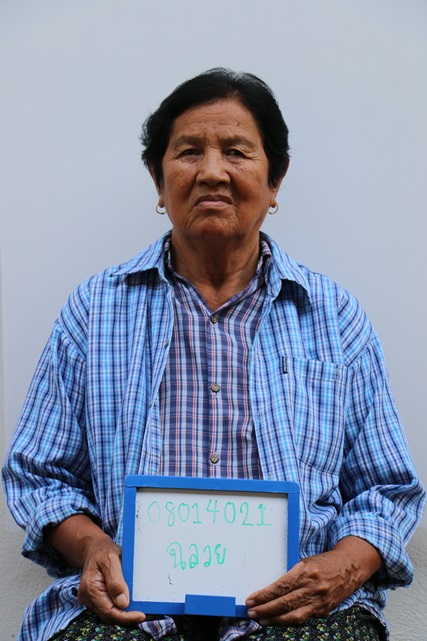 08014021
ฉลวย